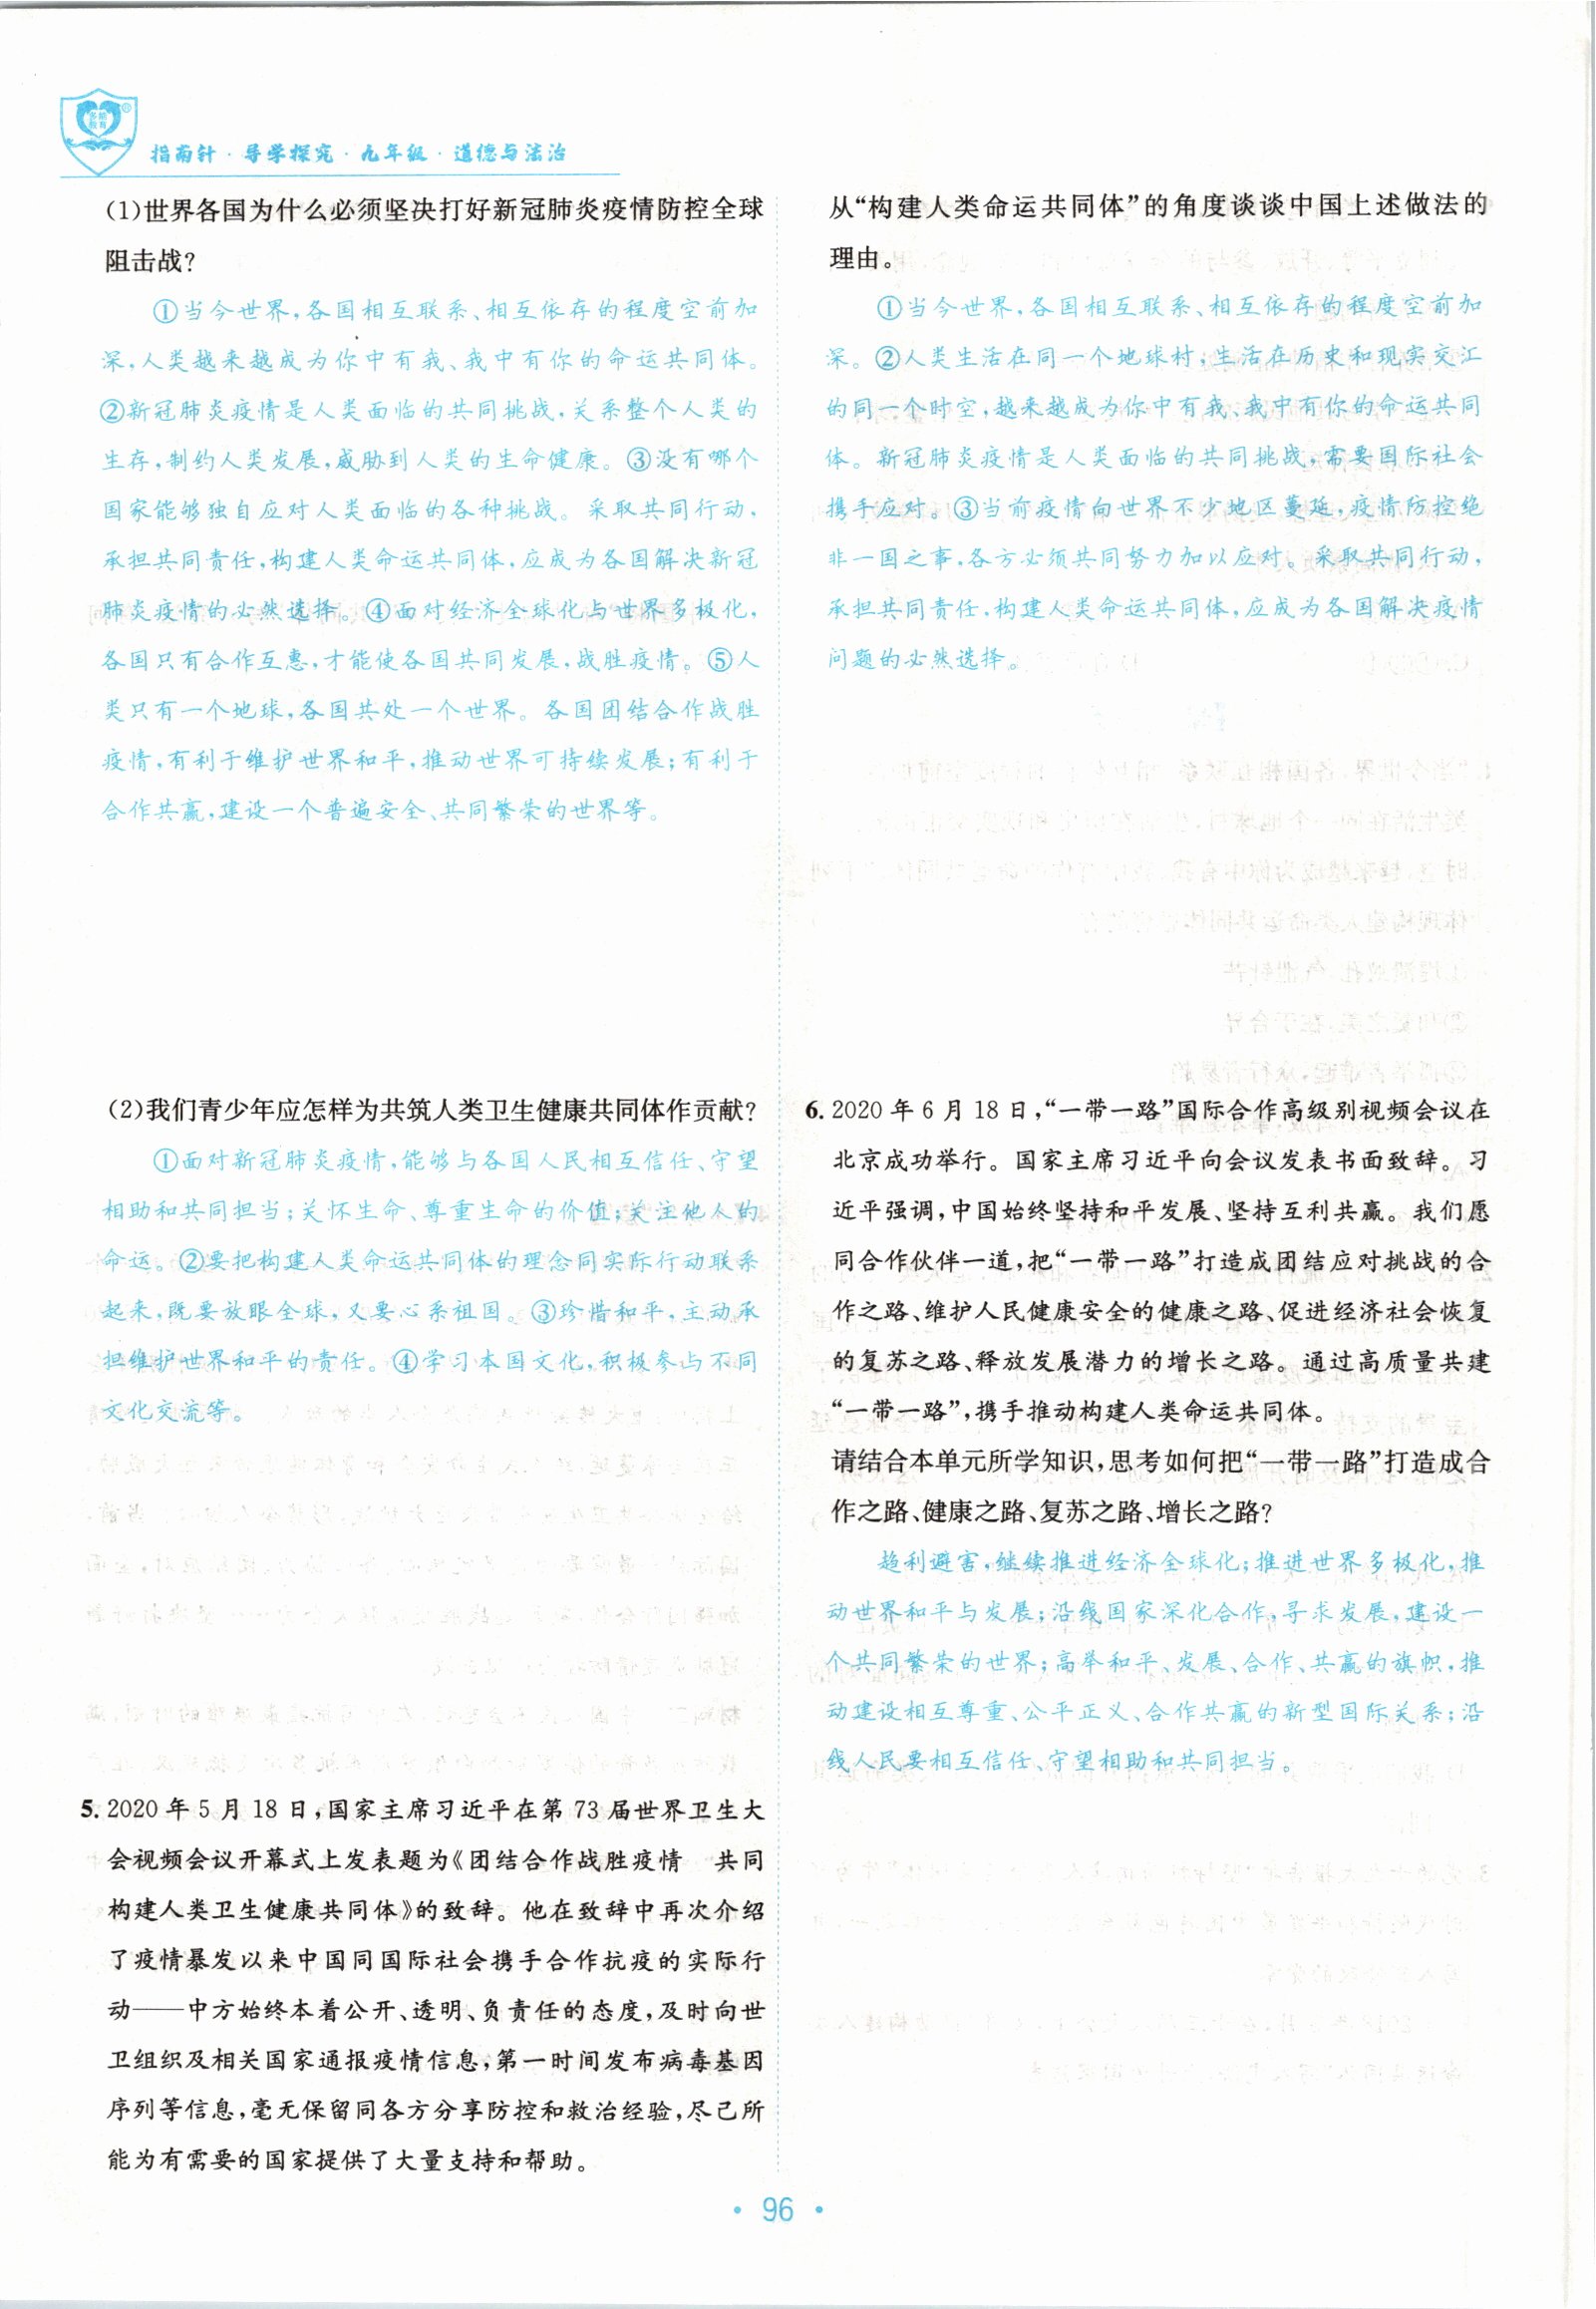 指南针·导学探究·九年级·道德与法治
(1)世界各国为什么必须坚决打好新冠肺炎疫情防控全球
阻击战?
①当今世界,各国相互联系、相互依存的程度空前加
深,人类越来越成为你中有我、我中有你的命运共同体。
②新冠肺炎疫情是人类面临的共同挑战,关系整个人类的
生存,制约人类发展,威胁到人类的生命健康。③没有哪个
国家能够独自应对人类面临的各种挑战。采取共同行动,
承担共同责任,构建人类命运共同体,应成为各国解决新冠
肺炎疫情的必然选择。④面对经济全球化与世界多极化,
各国只有合作互惠,才能使各国共同发展,战胜疫情。⑤人
类只有一个地球,各国共处一个世界。各国团结合作战胜
疫情,有利于维护世界和平,推动世界可持续发展;有利于
合作共赢,建设一个普遍安全、共同繁荣的世界等。
(2)我们青少年应怎样为共筑人类卫生健康共同体作贡献?
①面对新冠肺炎疫情,能够与各国人民相互信任、守望
相助和共同担当;关怀生命、尊重生命的价值;关注他人的
命运。②要把构建人类命运共同体的理念同实际行动联系
起来,既要放眼全球,又要心系祖国。③珍惜和平,主动承
担维护世界和平的责任。④学习本国文化,积极参与不同
文化交流等。
5. 2020年5月18日,国家主席习近平在第73届世界卫生大
会视频会议开幕式上发表题为《团结合作战胜疫情 共同
构建人类卫生健康共同体》的致辞。他在致辞中再次介绍
了疫情暴发以来中国同国际社会携手合作抗疫的实际行
动——中方始终本着公开、透明、负责任的态度,及时向世
卫组织及相关国家通报疫情信息,第一时间发布病毒基因
序列等信息,毫无保留同各方分享防控和救治经验,尽己所
能为有需要的国家提供了大量支持和帮助。
从“构建人类命运共同体”的角度谈谈中国上述做法的
理由。
①当今世界,各国相互联系、相互依存的程度空前加
深。②人类生活在同一个地球村,生活在历史和现实交汇
的同一个时空,越来越成为你中有我、我中有你的命运共同
体。新冠肺炎疫情是人类面临的共同挑战,需要国际社会
携手应对。③当前疫情向世界不少地区蔓延,疫情防控绝
非一国之事,各方必须共同努力加以应对。采取共同行动,
承担共同责任,构建人类命运共同体,应成为各国解决疫情
问题的必然选择。
6. 2020年6月18日,“一带一路”国际合作高级别视频会议在
北京成功举行。国家主席习近平向会议发表书面致辞。习
近平强调,中国始终坚持和平发展、坚持互利共赢。我们愿
同合作伙伴一道,把“一带一路”打造成团结应对挑战的合
作之路、维护人民健康安全的健康之路、促进经济社会恢复
的复苏之路、释放发展潜力的增长之路。通过高质量共建
“一带一路”,携手推动构建人类命运共同体。
请结合本单元所学知识,思考如何把“一带一路”打造成合
作之路、健康之路、复苏之路、增长之路?
趋利避害,继续推进经济全球化;推进世界多极化,推
动世界和平与发展;沿线国家深化合作,寻求发展,建设一
个共同繁荣的世界;高举和平、发展、合作、共赢的旗帜,推
动建设相互尊重、公平正义、合作共赢的新型国际关系;沿
线人民要相互信任、守望相助和共同担当。
· 96 ·